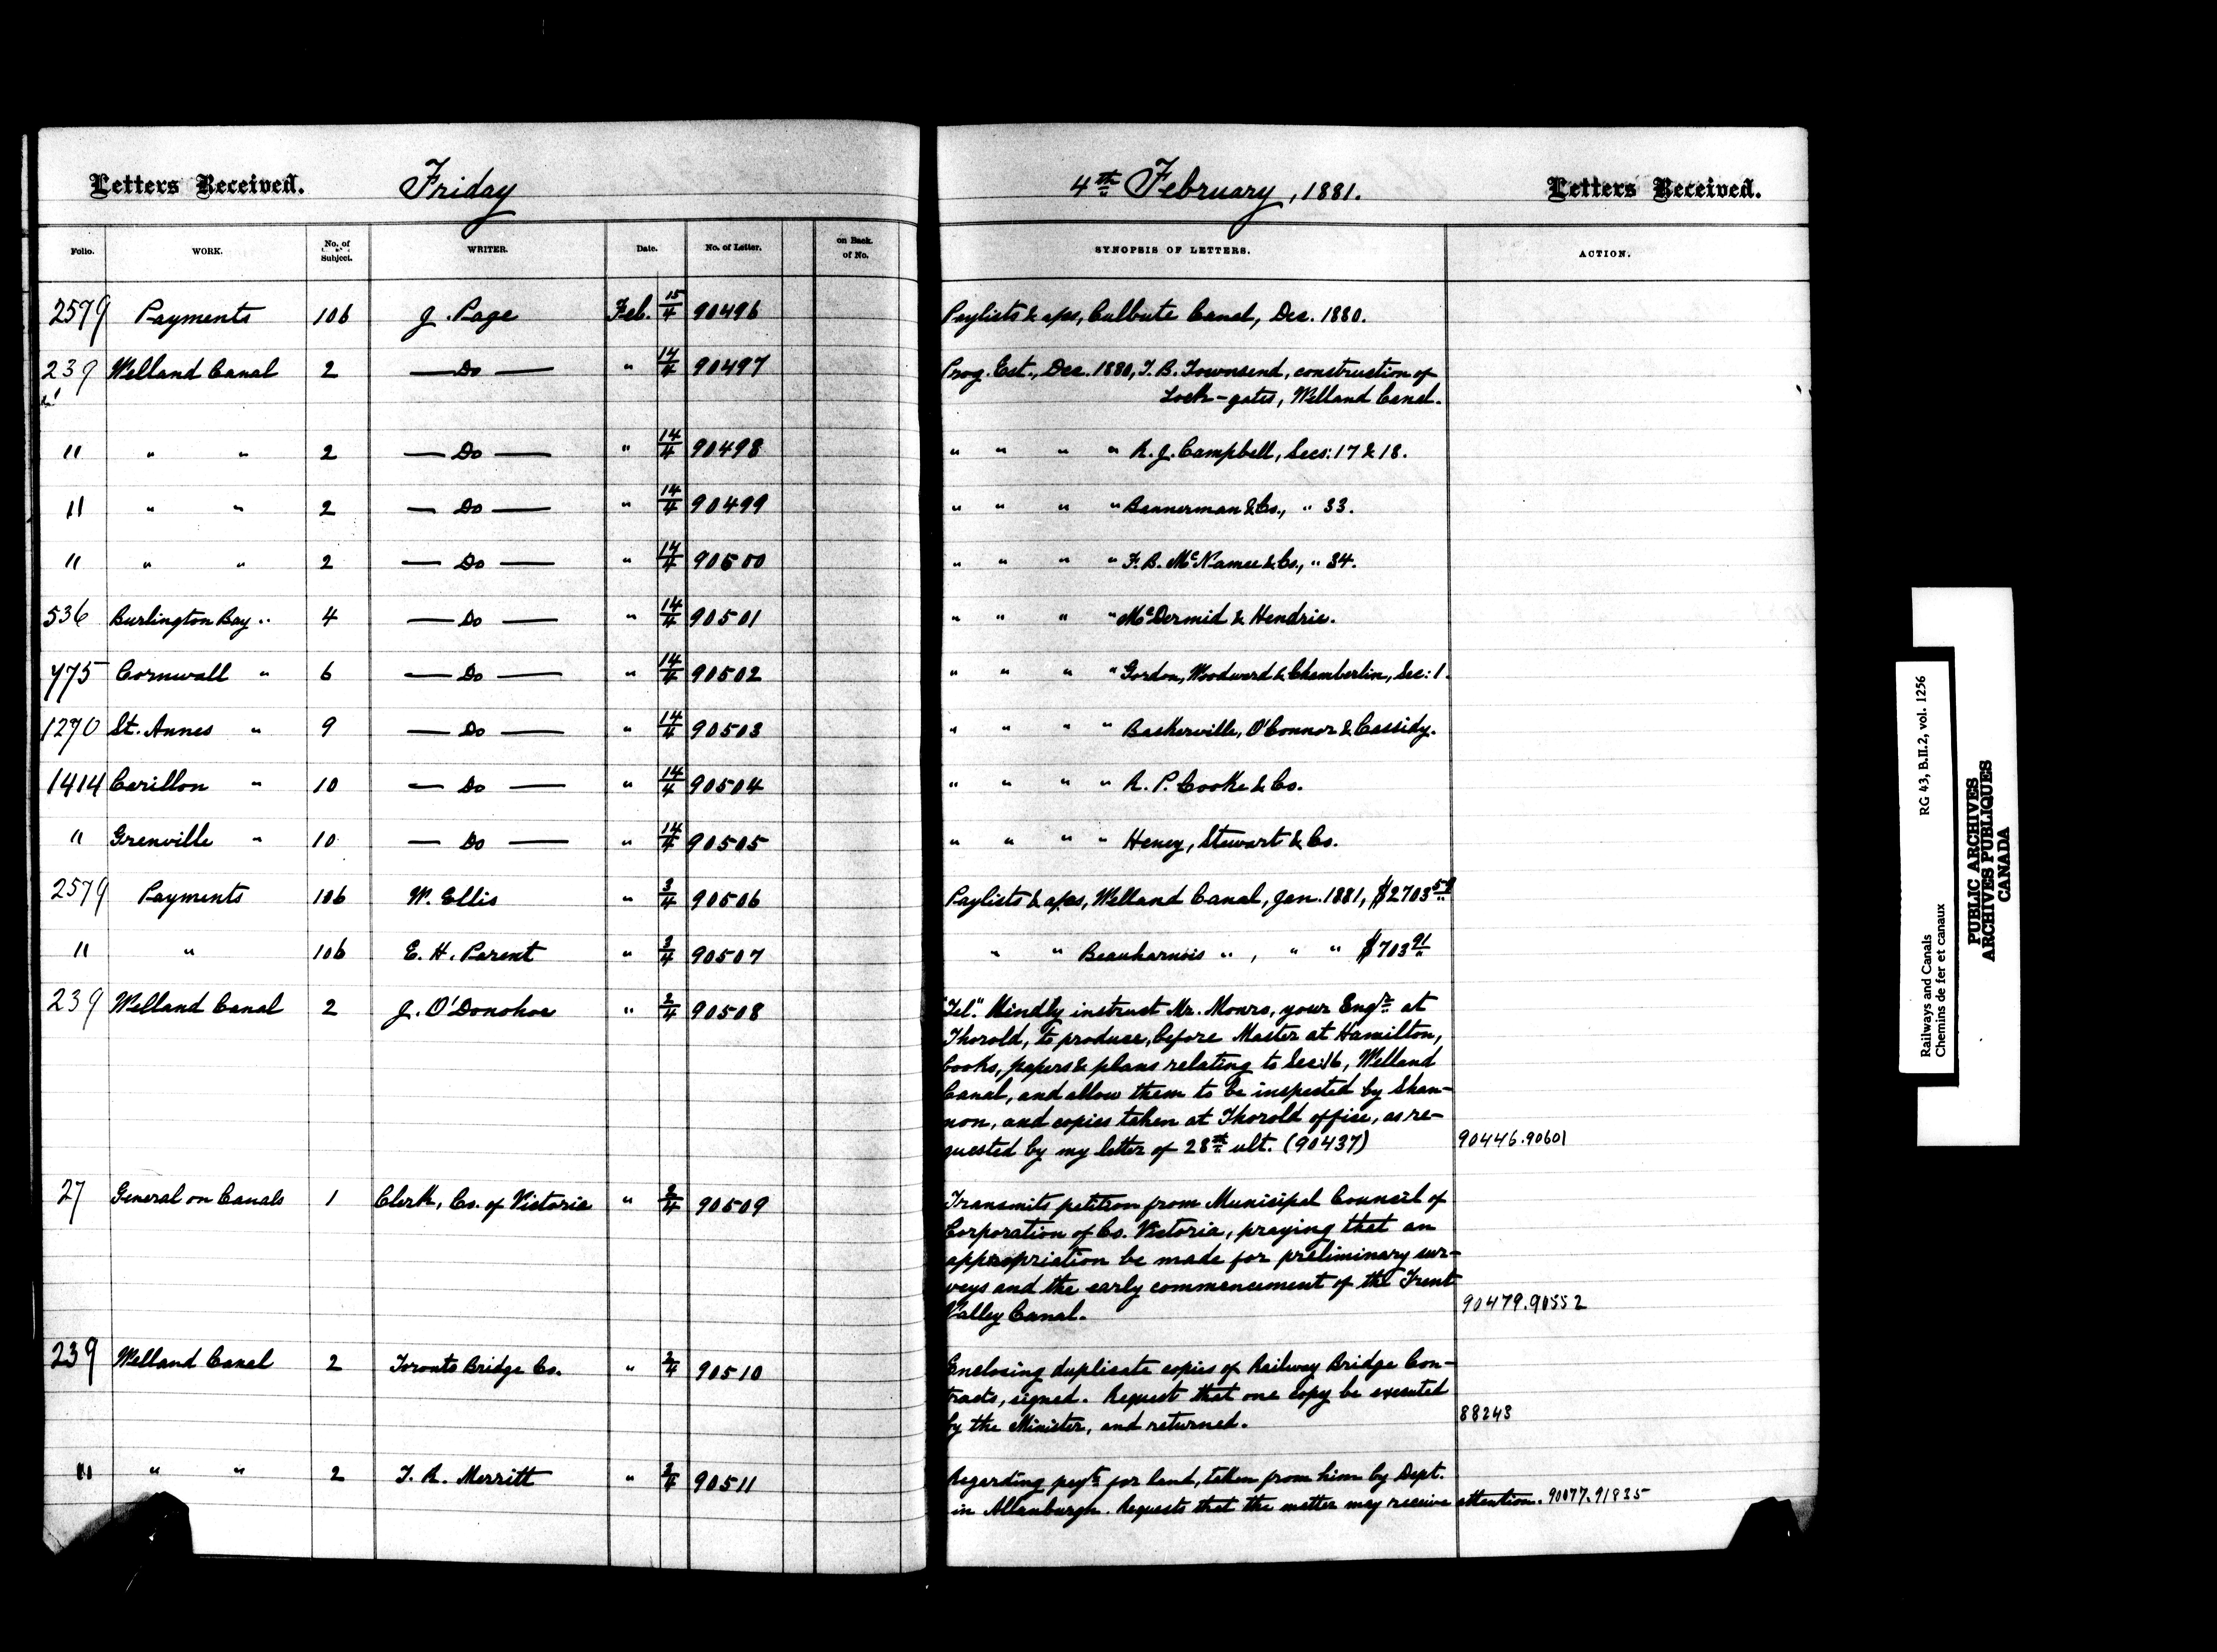 Letters Received. Friday 4th February, 1881. Letters Received.
Folio. WORK. No. of Subject. WRITER. Date. No. of Letter. on Back. of No. SYNOPSIS OF LETTERS. ACTION.
2579 Payments 106 J. Page Feb. 15/4 90496 Paylists & aps, Culbute Canal, Dec. 1880.
239 Welland Canal 2 — Do — " 14/4 90497 Prog. Est., Dec. 1880, T. B. Townsend, construction of
Lock-gates, Welland Canal.
" " " 2 — Do — " 14/4 90498 " " " " A. J. Campbell, Secs: 17 & 18.
" " " 2 — Do — " 14/4 90499 " " " " Bannerman & Co., " 33.
" " " 2 — Do — " 14/4 90500 " " " " F. B. McNamee & Co., " 34.
536 Burlington Bay " 4 — Do — " 14/4 90501 " " " " McDermid & Hendrie.
775 Cornwall " 6 — Do — " 14/4 90502 " " " " Gordon, Woodward & Chamberlin, Sec: 1.
1270 St. Annes " 9 — Do — " 14/4 90503 " " " " Baskerville, O'Connor & Cassidy.
1414 Carillon " 10 — Do — " 14/4 90504 " " " " R. P. Cooke & Co.
" Grenville " 10 — Do — " 14/4 90505 " " " " Heney, Stewart & Co.
2579 Payments 106 W. Ellis " 3/4 90506 Paylists & apes, Welland Canal, Jan. 1881, $2703
" " 106 E. H. Parent " 3/4 90507 " " Beauharnois " , " " $703 91
239 Welland Canal 2 J. O'Donohoe " 2/4 90508 "Tel." Kindly instruct Mr. Monro, your Engr. at
Thorold, to produce, before Master at Hamilton,
books, papers & plans relating to Sec: 16, Welland
Canal, and allow them to be inspected by Shan-
non, and copies taken at Thorold office, as re-
quested by my letter of 28th ult. (90437) 90446.90601
27 General on Canals 1 Clerk, Co. of Victoria " 2/4 90509 Transmits petition from Municipal Council of
Corporation of Co. Victoria, praying that an
appropriation be made for preliminary sur-
veys and the early commencement of the Trent
Valley Canal. 90479.90552
239 Welland Canal 2 Toronto Bridge Co. " 2/4 90510 Enclosing duplicate copies of Railway Bridge Con-
tracts, signed. Request that one copy be executed
by the Minister, and returned. 88243
" " " 2 T. R. Merritt " 2/4 90511 Regarding payt. for land, taken from him by Dept.
in Allanburgh. Requests that the matter may receive attention. 90077.91835
Railways and Canals RG 43, B.II.2, vol. 1256
Chemins de fer et canaux
PUBLIC ARCHIVES
ARCHIVES PUBLIQUES
CANADA